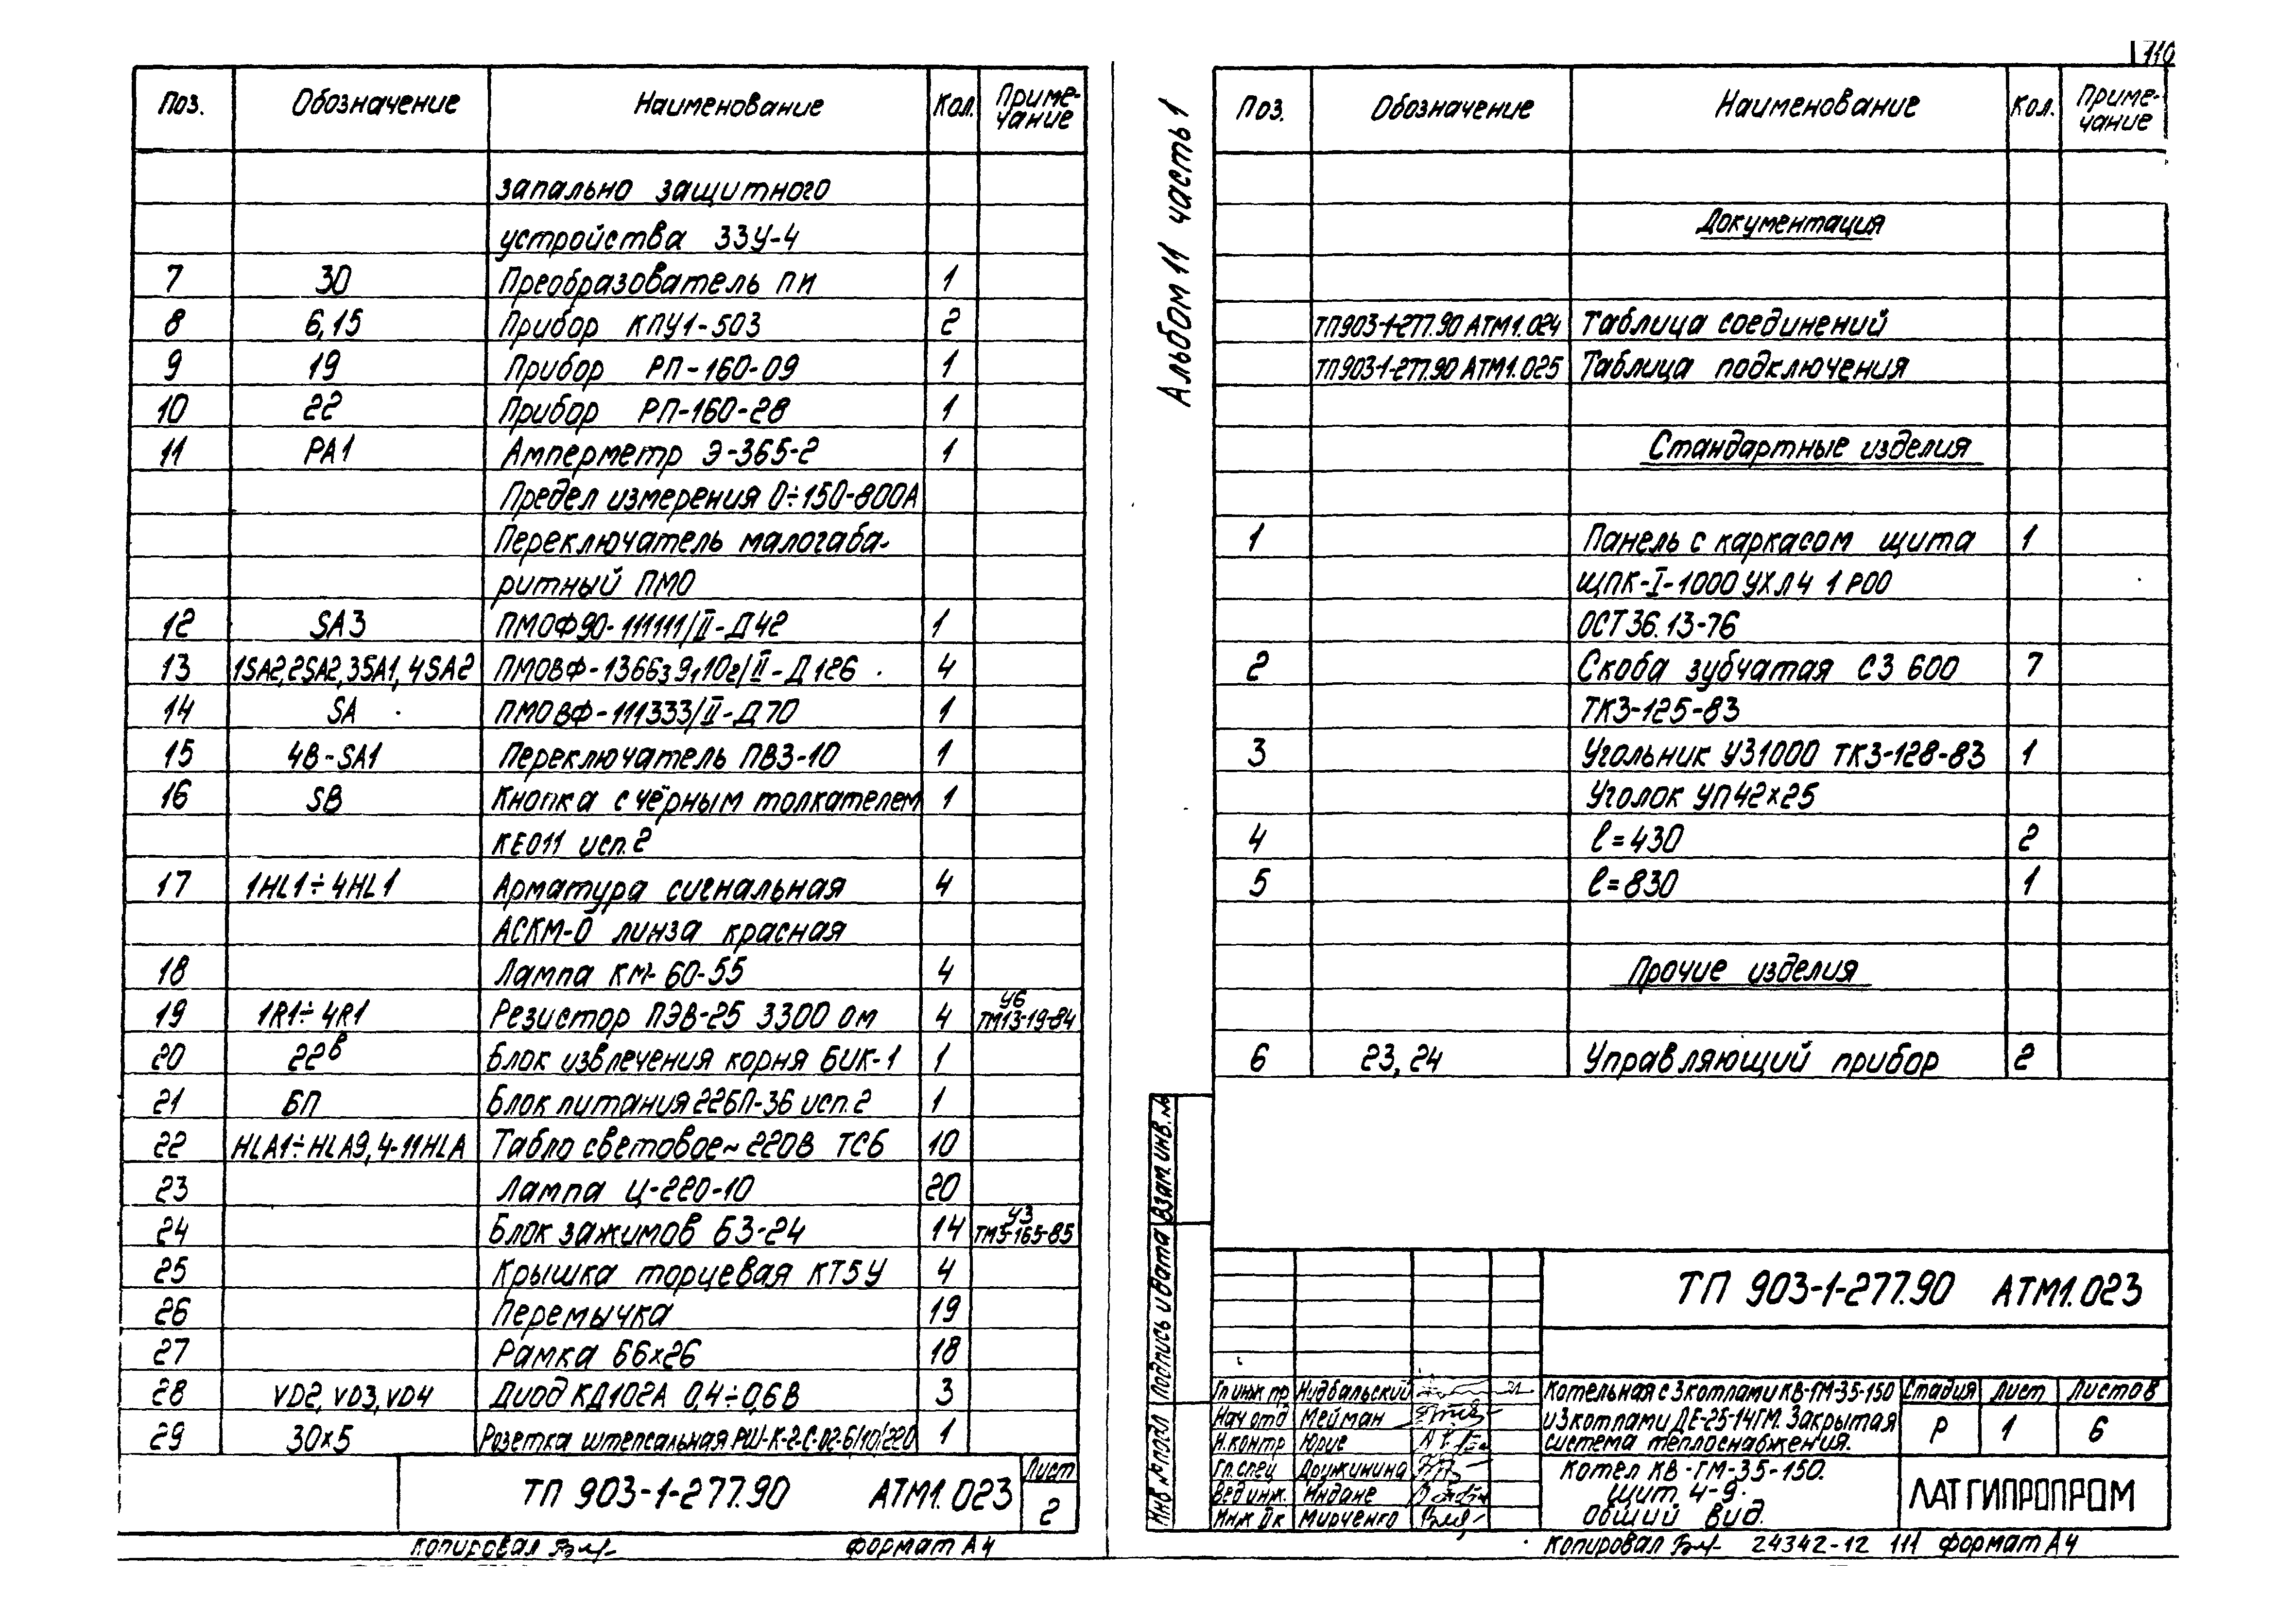 110
Поз. Обозначение Наименование Кол. Приме-
чание
запально защитного
устройства ЗЗУ-4
7 30 Преобразователь ПИ 1
8 6,15 Прибор КПУ1-503 2
9 19 Прибор РП-160-09 1
10 22 Прибор РП-160-28 1
11 РА1 Амперметр Э-365-2 1
Предел измерения 0÷150-800А
Переключатель малогаба-
ритный ПМО
12 SA3 ПМОФ90-111111/II-Д42 1
13 1SA2,2SA2,3SA1,4SA2 ПМОВФ-1366з9,10г/II-Д126 4
14 SA ПМОВФ-111333/II-Д70 1
15 4В-SA1 Переключатель ПВ3-10 1
16 SB Кнопка с чёрным толкателем 1
КЕ011 исп.2
17 1HL1÷4HL1 Арматура сигнальная 4
АСКМ-0 линза красная
18 Лампа КМ-60-55 4
19 1R1÷4R1 Резистор ПЭВ-25 3300 ом 4 У6
ТМ13-19-84
20 22в Блок извлечения корня БИК-1 1
21 БП Блок питания 22БП-36 исп.2 1
22 HLA1÷HLA9,4-11HLA Табло световое~220В ТСБ 10
23 Лампа Ц-220-10 20
24 Блок зажимов БЗ-24 14 У3
ТМ3-165-85
25 Крышка торцевая КТ5У 4
26 Перемычка 19
27 Рамка 66х26 18
28 VD2, VD3, VD4 Диод КД102А 0,4÷0,6В 3
29 30х5 Розетка штепсальная РШ-К-2-С-02-6/10/220 1
ТП 903-1-277.90 АТМ1.023 Лист
2
Копировал формат А4
Альбом 11 часть 1
Поз. Обозначение Наименование Кол. Приме-
чание
Документация
ТП903-1-277.90 АТМ1.024 Таблица соединений
ТП903-1-277.90 АТМ1.025 Таблица подключения
Стандартные изделия
1 Панель с каркасом щита 1
ЩПК-I-1000 УХЛ4 1Р00
ОСТ 36.13-76
2 Скоба зубчатая СЗ 600 7
ТК3-125-83
3 Угольник У31000 ТК3-128-83 1
Уголок УП42х25
4 l=430 2
5 l=830 1
Прочие изделия
6 23,24 Управляющий прибор 2
Инв № подл Подпись и дата Взам. инв. №
ТП 903-1-277.90 АТМ1.023
Гл инж пр Нидбальский
Нач отд Мейман
Н.контр Юрие
Гл.спец Дружинина
Вед инж. Индане
Инж IIк Мирченко
Котельная с 3 котлами КВ-ГМ-35-150
и 3 котлами ДЕ-25-14ГМ. Закрытая
система теплоснабжения.
Стадия Лист Листов
Р 1 6
Котел КВ-ГМ-35-150.
Щит 4-9.
Общий вид.
ЛАТГИПРОПРОМ
Копировал 24342-12 111 формат А4